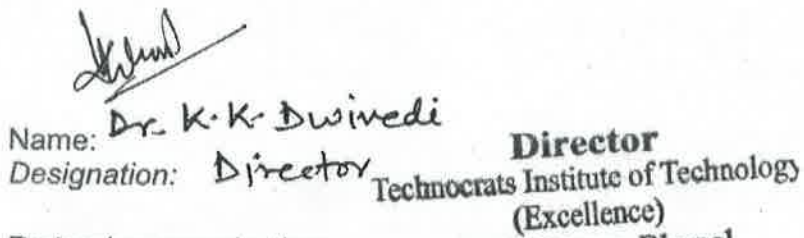 Name: Dr. K. K. Dwivedi
Designation: Director
Director
Technocrats Institute of Technology
(Excellence)
Bhopal